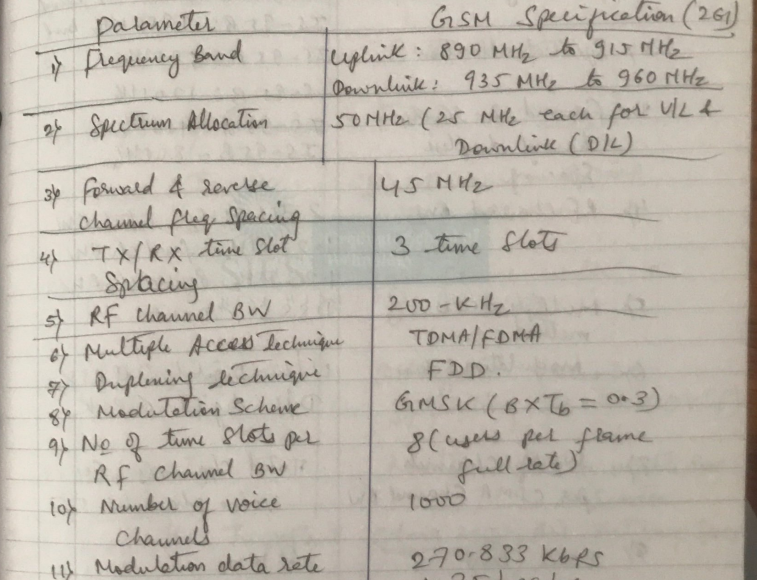 Parameter GSM Specification (2G)
1) Frequency Band Uplink : 890 MHz to 915 MHz
Downlink : 935 MHz to 960 MHz
2) Spectrum Allocation 50 MHz (25 MHz each for U/L &
Downlink (D/L)
3) Forward & reverse 45 MHz
channel freq spacing
4) TX/RX time slot 3 time slots
Spacing
5) RF channel BW 200-KHz
6) Multiple Access technique TDMA/FDMA
7) Duplexing technique FDD.
8) Modulation Scheme GMSK (BXTb = 0.3)
9) No of time slots per 8 (users per frame
RF Channel BW full rate)
10) Number of voice 1000
Channels
11) Modulation data rate 270.833 Kbps